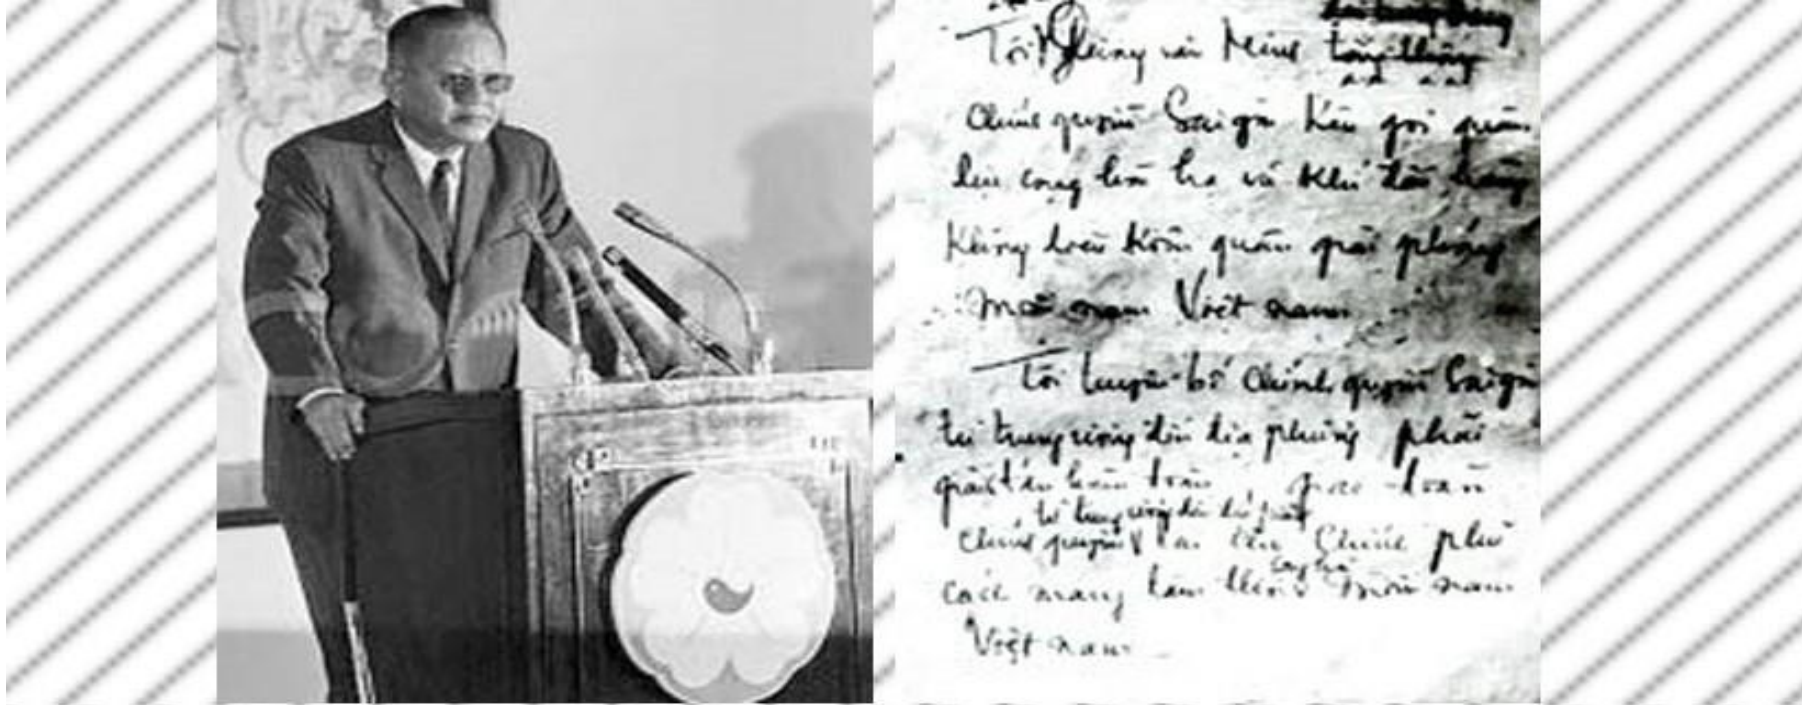 Tôi Dương văn Minh tổng thống
Chính quyền Saigon kêu gọi quân
lực cộng hòa hạ vũ khí đầu hàng
không điều kiện quân giải phóng
miền nam Việt nam
Tôi tuyên bố chính quyền Saigon
từ trung ương đến địa phương phải
giải tán hoàn toàn, giao toàn
từ trung ương đến địa phương
chính quyền lại cho Chính phủ
cách mạng lâm thời miền nam
Việt nam